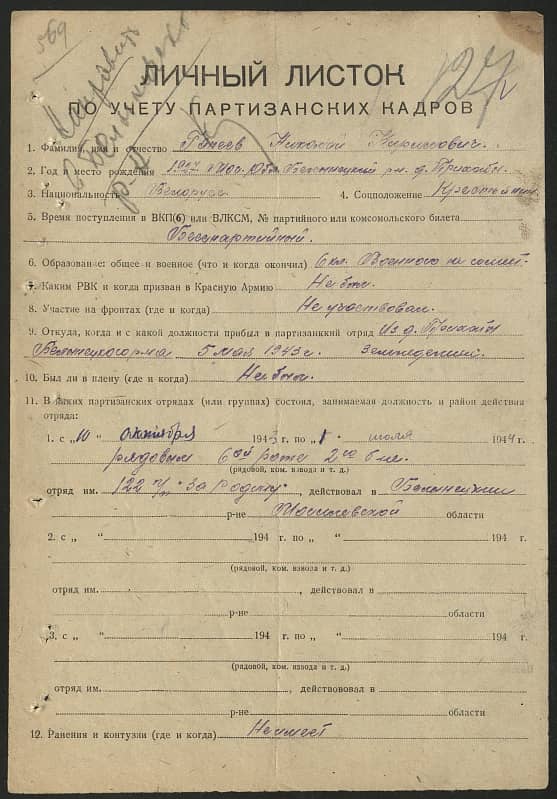 569
127
ЛИЧНЫЙ ЛИСТОК
ПО УЧЕТУ ПАРТИЗАНСКИХ КАДРОВ
1. Фамилия, имя и отчество Николай
2. Год и место рождения 1927 Мог. обл. Белыничский рн. д.
3. Национальность Белорус 4. Соцположение Крестьянин
5. Время поступления в ВКП(б) или ВЛКСМ, № партийного или комсомольского билета
Беспартийный.
6. Образование: общее и военное (что и когда окончил) 6 кл. Военного не
7. Каким РВК и когда призван в Красную Армию Не был.
8. Участие на фронтах (где и когда) Не участвовал.
9. Откуда, когда и с какой должности прибыл в партизанский отряд Из д.
5 мая 1943 г.
10. Был ли в плену (где и когда) Не был.
11. В каких партизанских отрядах (или группах) состоял, занимаемая должность и район действия
отряда:
1. с „10 октября 1943 г. по „1 июля 1944 г.
рядовым 6ой роте 2го б-на.
(рядовой, ком. взвода и т. д.)
отряд им. 122 п/п "За Родину", действовал в
р-не Могилевской области
2. с „ “ 194 г. по „ “ 194 г.
(рядовой, ком. взвода и т. д.)
отряд им. , действовал в
р-не области
3. с „ “ 194 г. по „ “ 194 г.
(рядовой, ком. взвода и т. д.)
отряд им. , действовавал в
р-не области
12. Ранения и контузии (где и когда) Не имеет